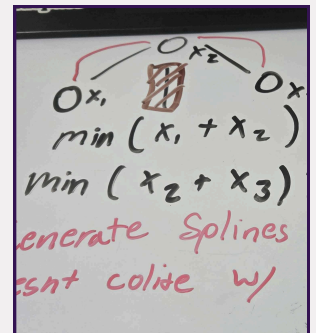 x₂
x₁
x
min ( x₁ + x₂ )
min ( x₂ + x₃ )
enerate Splines
esnt colide w/